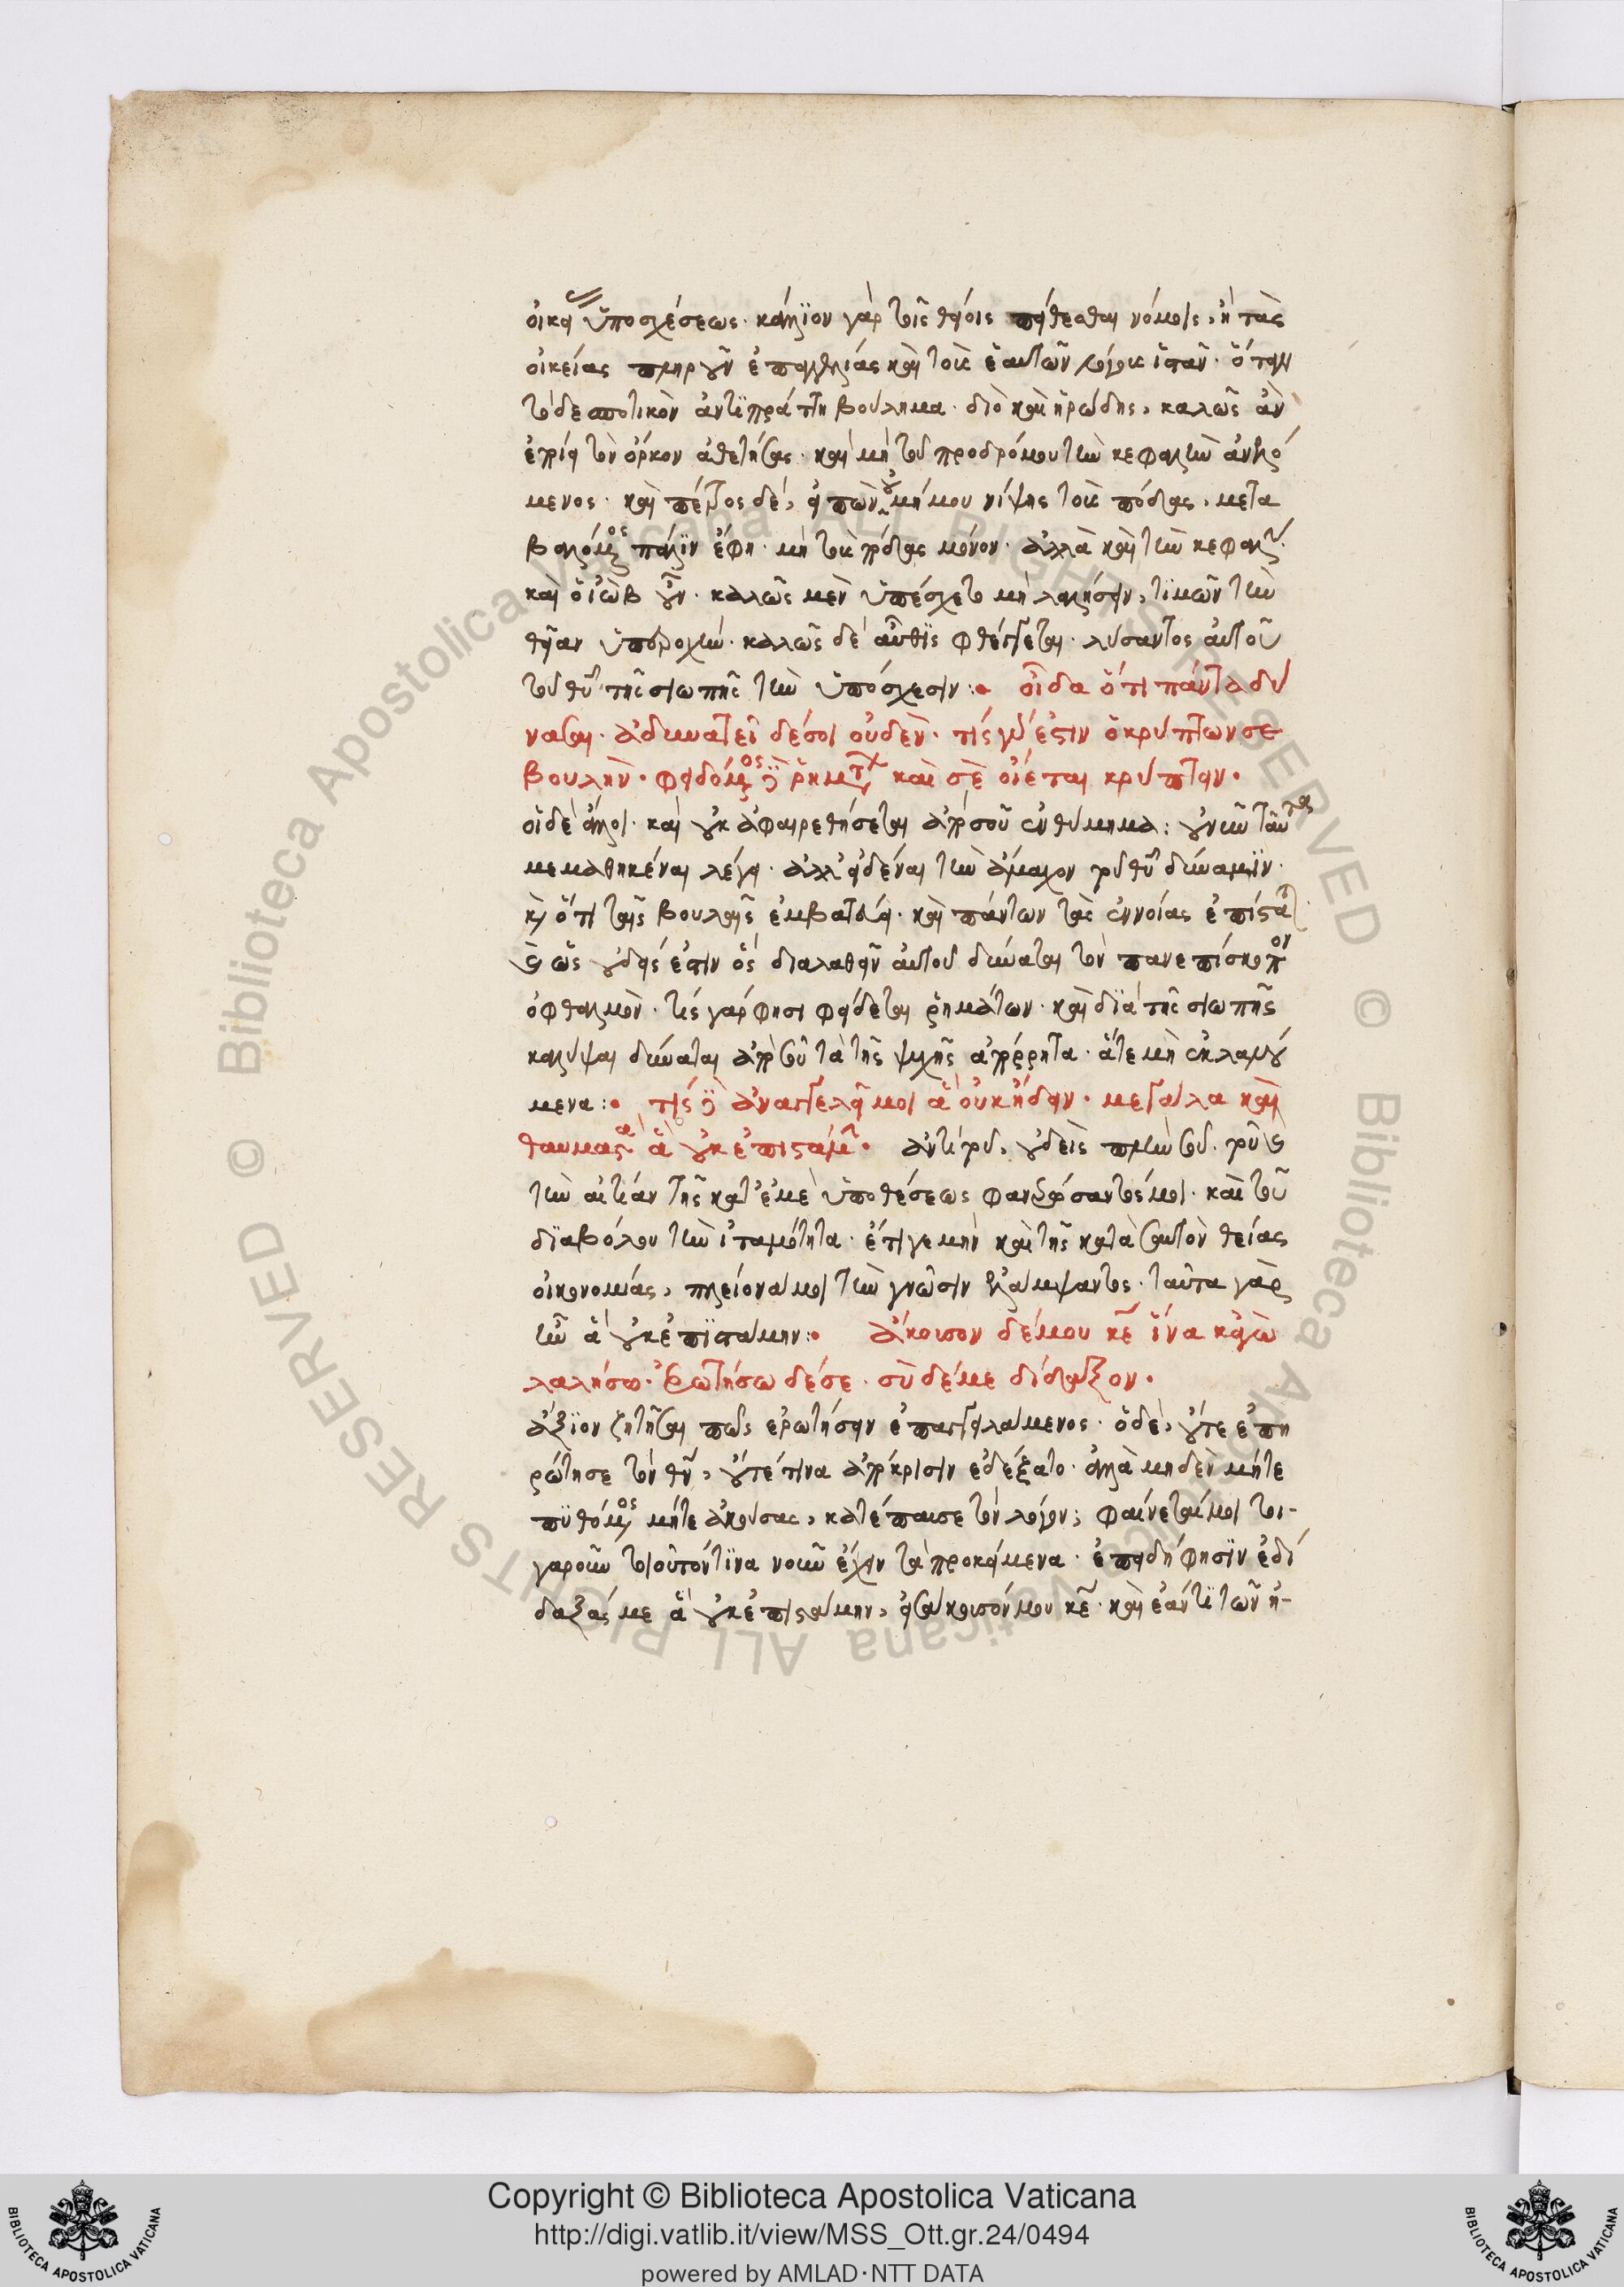 οἰκεί ὑποσχέσεως· κάλλϊον γὰρ τοῖς θείοις πείθεσθαι νόμοις, ἢ τὰς
οἰκείας πληροῦν ἐπαγγελίας καὶ τοῖς ἑαυτῶν λόγοις
τὸ δεσποτικὸν ἀντϊπράττῃ βούλημα· διὸ καὶ ἡρώδης, καλῶς ἂν
ἐποίει τὸν ὅρκον ἀθετήσας· καὶ μὴ τοῦ προδρόμου τὴν κεφαλὴν
μενος· καὶ πέτρος δὲ, εἰπὼν οὐ μή μου νίψῃς τοὺς πόδας, μετα
βαλόμενος πάλϊν ἔφη· μὴ τοὺς πόδας μόνον· ἀλλὰ καὶ τὴν κεφαλήν·
καὶ ὁ ἰὼβ οὖν· καλῶς μὲν ὑπέσχετο μὴ λαλήσειν, τϊμῶν τὴν
θείαν ὑπεροχήν· καλῶς δὲ αὖθϊς φθέγγεται· λύσαντος αὐτοῦ
τοῦ θυ τῆς σιωπῆς τὴν ὑπόσχεσιν:· οἶδα ὅτι πάντα δύ
νασαι· ἀδυνατεῖ δέ σοι οὐδέν· τίς γάρ ἐστιν ὁ κρύπτων σε
βουλὴν· φειδόμενος δὲ ῥημάτων καὶ σὲ οἴεται κρύπτειν·
οἱ δὲ ἄλλοι· καὶ οὐκ ἀφαιρεθήσεται ἀπὸ σοῦ ἐνθύμημα: οὐ νῦν ταῦτα
μεμαθηκέναι λέγει· ἀλλ' εἰδέναι τὴν ἄμαχον τοῦ θυ δύναμϊν·
κ ὅτι ταῖς βουλαῖς ἐμβατεύει· καὶ πάντων τὰς ἐννοίας ἐπίσταται
καὶ ὡς οὐδείς ἐστιν ὃς διαλαθεῖν αὐτοῦ δύναται τὸν πανεπίσκοπον
ὀφθαλμόν· τίς γάρ φησι φείδεται ῥημάτων· καὶ δϊὰ τῆς σιωπῆς
καλύψαι δύναται ἀπὸ σοῦ τὰ τῆς ψυχῆς ἀπόρρητα· ἅτε μὴ ἐκλαλού
μενα:· τίς δὲ ἀναγγελεῖ μοι ἃ οὐκ ᾔδειν· μεγάλα καὶ
θαυμαστὰ ἃ οὐκ ἐπιστάμην· ἀντὶ τοῦ, οὐδεὶς πλὴν σοῦ· τοῦ καὶ
τὴν αἰτίαν τῆς κατ' ἐμὲ ὑποθέσεως φανερώσαντός μοι· καὶ τοῦ
δϊαβόλου τὴν ἰταμότητα· ἔτι γε μὴν καὶ τῆς κατὰ σαυτὸν θείας
οἰκονομίας, πλείονά μοι τὴν γνῶσιν ἐλλάμψαντος· ταῦτα γὰρ
ἦν ἃ οὐκ ἐπϊστάμην:· ἄκουσον δέ μου κε ἵνα κἀγὼ
λαλήσω· ἐρωτήσω δέ σε· σὺ δέ με δίδαξον·
ἄξϊον ζητῆσαι πῶς ἐρωτήσειν ἐπαγγειλάμενος· ὁ δὲ, οὔτε ἐπη
ρώτησε τὸν θν, οὔτέ τινα ἀπόκρισιν ἐδέξατο· ἀλλὰ μηδὲν μήτε
πϋθόμενος μήτε ἀκούσας, κατέπαυσε τὸν λόγον; φαίνεταί μοι τοι-
γαροῦν τοιοῦτόν τϊνα νοῦν ἔχειν τὰ προκείμενα· ἐπειδή φησϊν ἐδί
δαξάς με ἃ οὐκ ἐπιστάμην, εἰσάκουσόν μου κε· καὶ ἐάν τϊ τῶν ἠ-
Copyright © Biblioteca Apostolica Vaticana
http://digi.vatlib.it/view/MSS_Ott.gr.24/0494
powered by AMLAD·NTT DATA